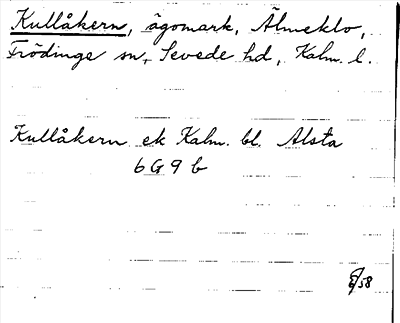 Kullåkern, ägomark, Älmeklo,
Frödinge sn, Sevede hd, Kalm. l.
Kullåkern ek Kalm. bl. Alsta
6 G 9 b
58